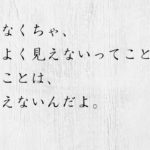 なくちゃ、
よく見えないってこと
ことは、
えないんだよ。